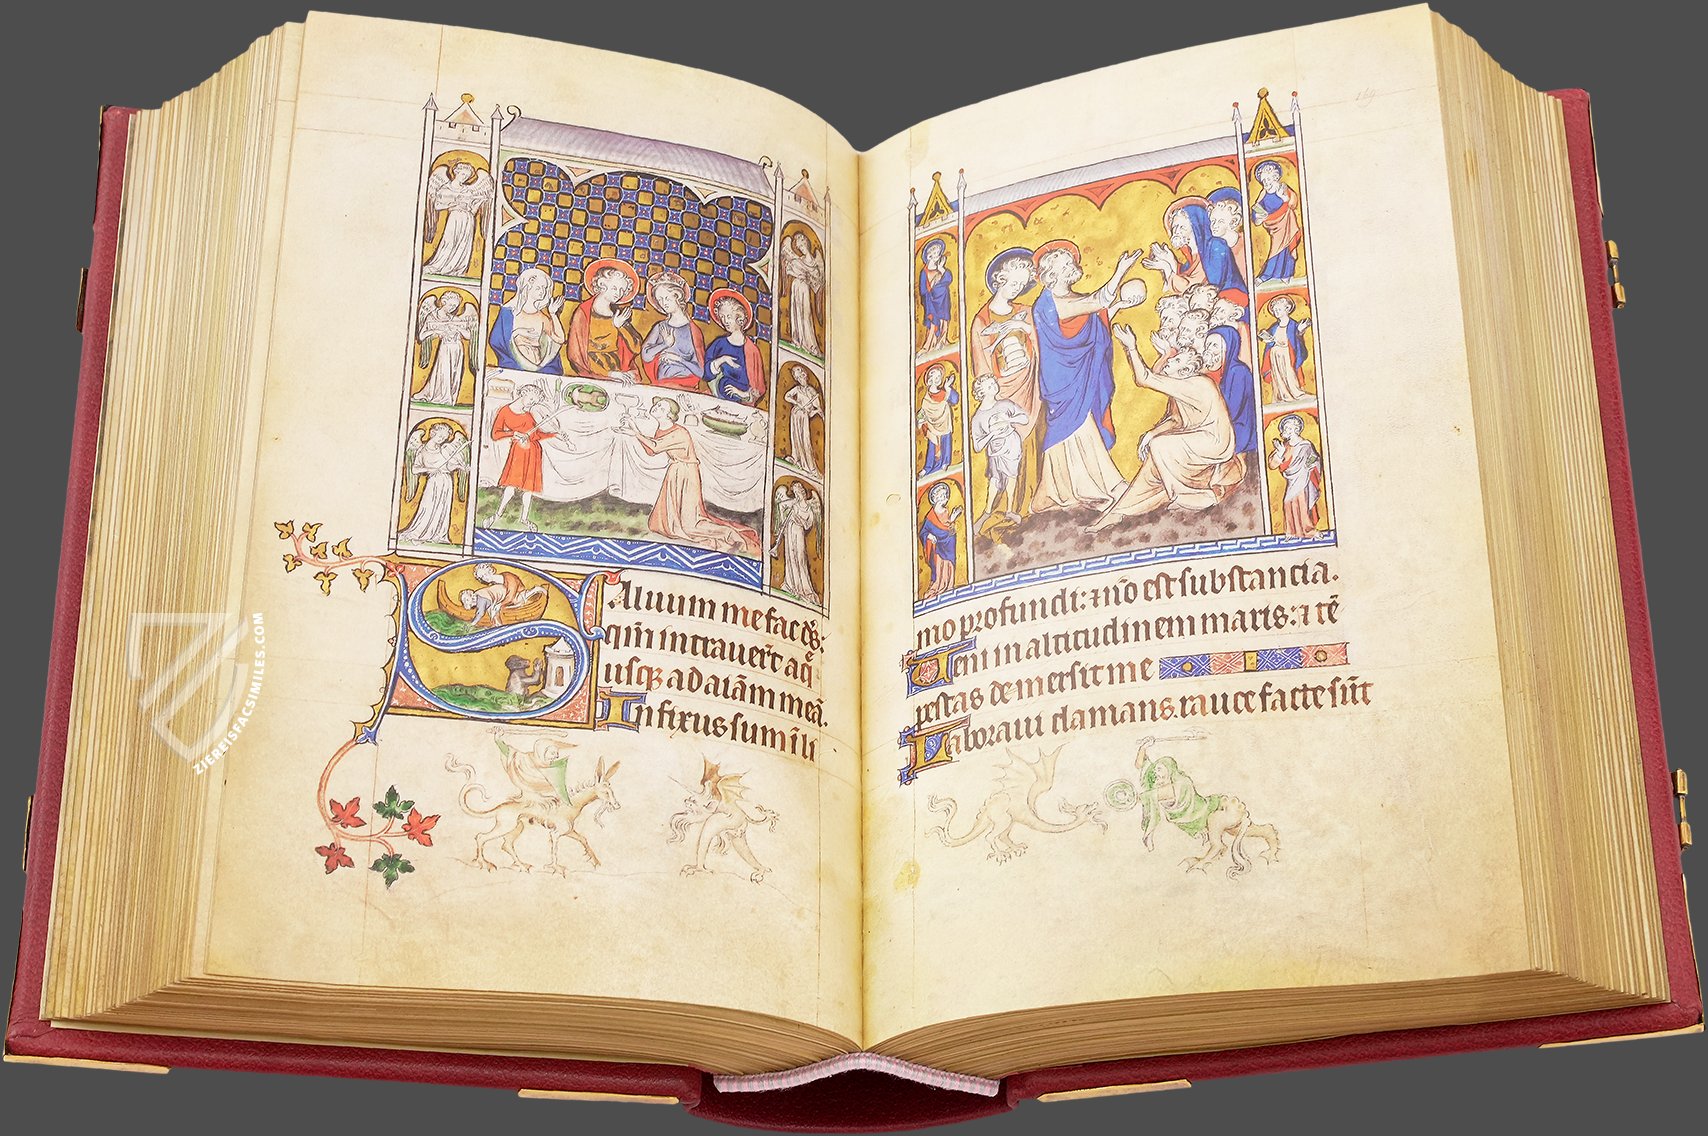 Saluum me fac ds:
qm̄ intrauer̄t aq̄
usq; ad aīam meā.
Infixus sum ī li
169
mo profundi: ⁊ nō est substancia.
Ueni in altitudinem maris: ⁊ tē
pestas demersit me
Laboraui clamans. rauce facte sūt
ZIEREISFACSIMILES.COM